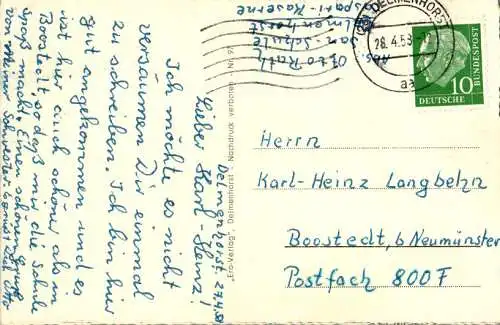 Delmenhorst, 27.4.58
Lieber Karl-Heinz!
Ich möchte es nicht
versäumen Dir einmal
zu schreiben. Ich bin hier
gut angekommen und es
ist hier auch schöner als in
Boostedt, so daß mir die Schule
Spaß macht. Einen schönen Gruß
von meiner Schwester. Es grüßt Dich Otto
Abs. Otto Rath
San-Schule
Delmenhorst
Caspari-Kaserne
"Ero-Verlag", Delmenhorst - Nachdruck verboten - Nr. 9
DELMENHORST
28.4.58
aa
DEUTSCHE
BUNDESPOST
10
Herrn
Karl-Heinz Langbehn
Boostedt, b Neumünster
Postfach 800 F